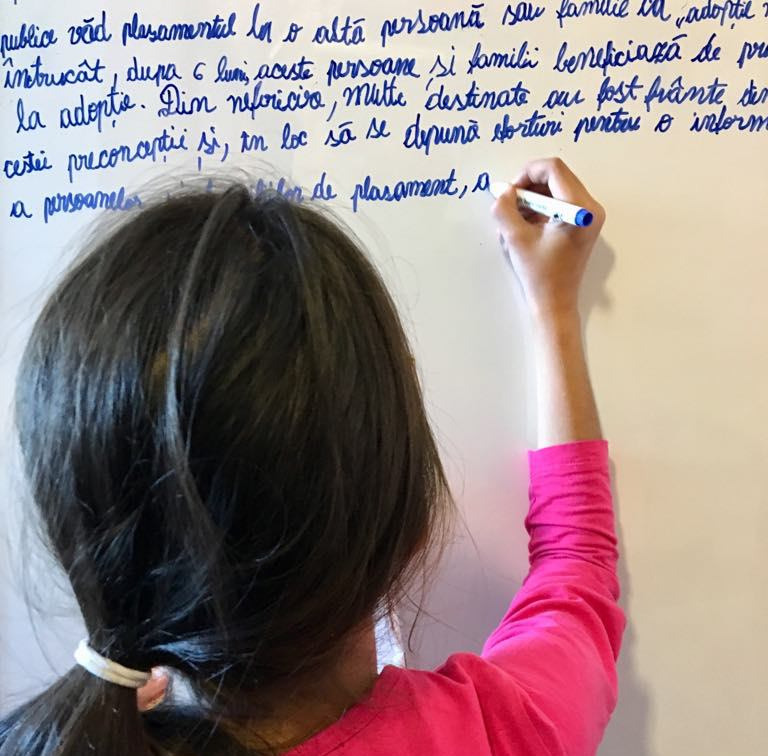 publice văd plasamentul la o altă persoană sau familie ca „adopție
întrucât, dupa 6 luni, aceste persoane și familii beneficiază de
la adopție. Din nefericire, multe destinate au fost frânte, din
cestei preconcepții și, în loc să se depună eforturi pentru o
a persoanelor de plasament, a